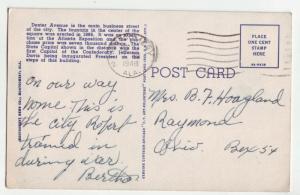 Dexter Avenue is the main business street
of the city. The fountain in the center of the
square was erected in 1885. It was on exhibition
at the Atlanta Exposition and the
chase price was seven thousand dollars. The
State Capitol shown in the distance was the
first Capitol of the Confederacy, Jefferson
Davis being inaugurated President on the
steps of this building.
ALA.
1948
PLACE
ONE CENT
STAMP
HERE
POST CARD
On our way
home This is
the city Robert
trained in
during war
Bertha
Mrs. B. F. Hoagland
Raymond
Ohio. Box 54